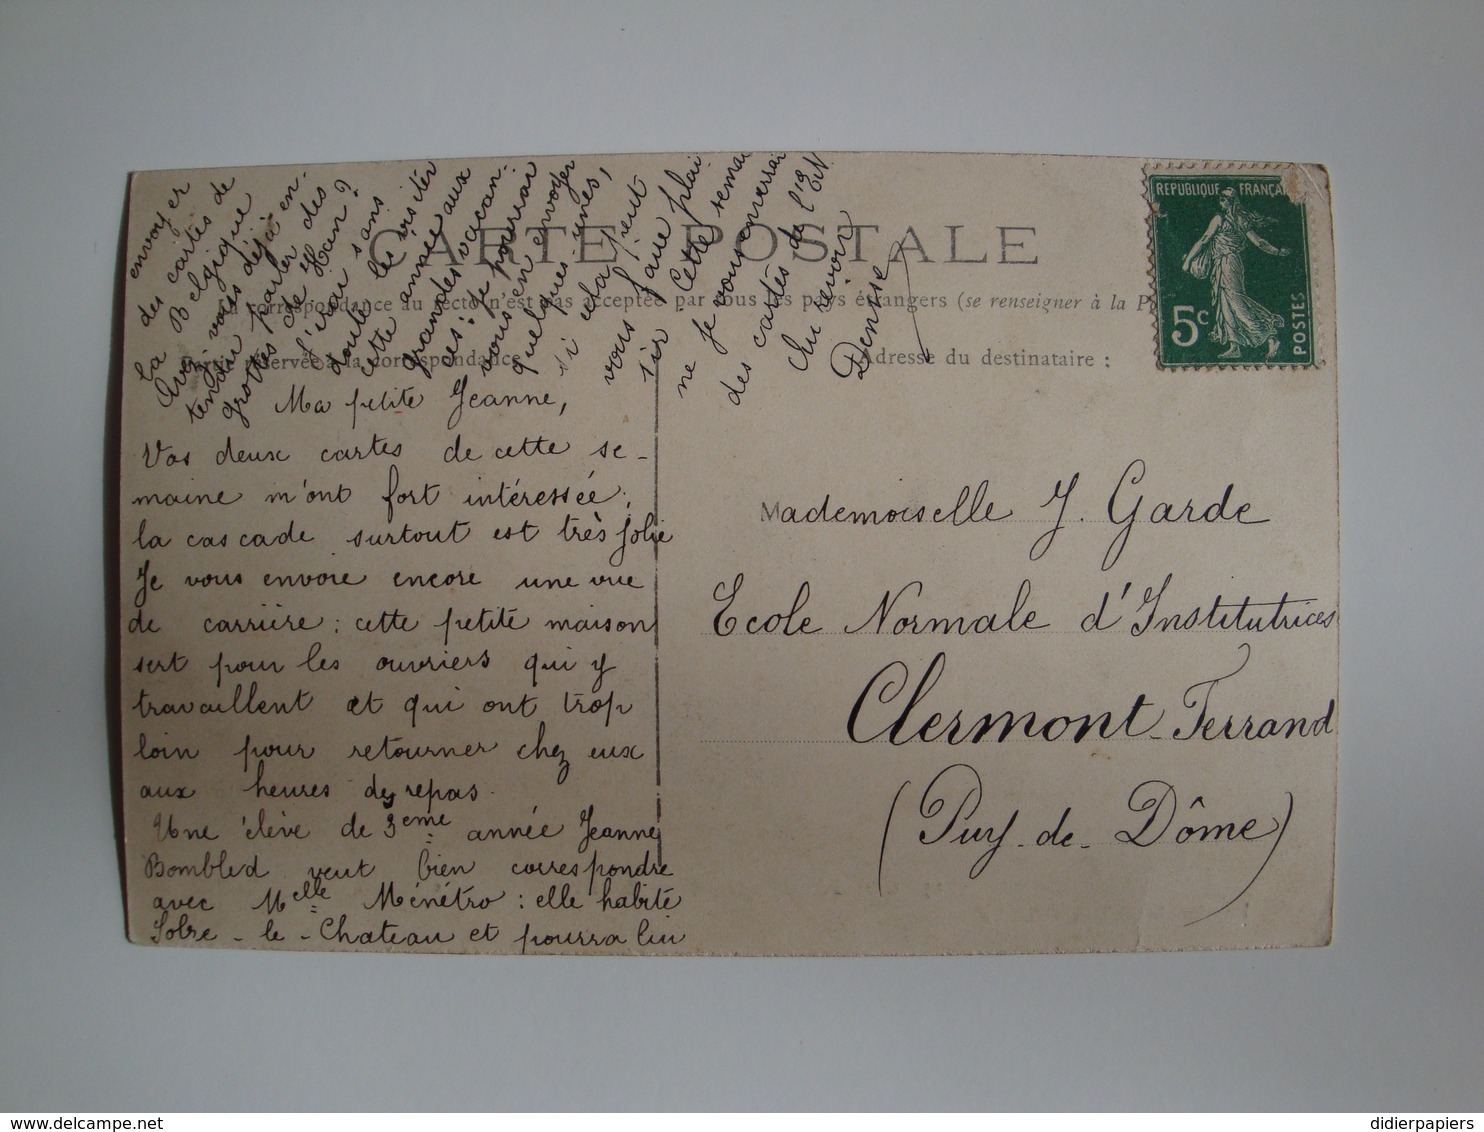 CARTE POSTALE
La correspondance au recto n'est pas acceptée par tous les pays étrangers (se renseigner à la P
Partie réservée à la correspondance
Adresse du destinataire :
REPUBLIQUE FRANÇAI
5c
POSTES
Ma petite Jeanne,
Vos deux cartes de cette se-
maine m'ont fort intéressée;
la cascade surtout est très jolie
Je vous envoie encore une vue
de carrière : cette petite maison
sert pour les ouvriers qui y
travaillent et qui ont trop
loin pour retourner chez eux
aux heures des repas.
Une élève de 3eme année Jeanne
Bombled veut bien correspondre
avec Melle Ménétro : elle habite
Solre-le-Chateau et pourra lui
envoyer
des cartes de
la Belgique
Avez vous déjà en-
tendu parler des
grottes de Han?
J'irai sans
doute les visiter
cette année aux
grandes vacan-
ces : je pourrai
vous en envoyer
quelques unes,
si cela peut
vous faire plai
sir. Cette semai
ne je vous enverrai
des cartes de l'EN
Au revoir
Denise
Mademoiselle J. Garde
Ecole Normale d'Institutrices
Clermont-Ferrand
(Puy-de-Dôme)
didierpapiers